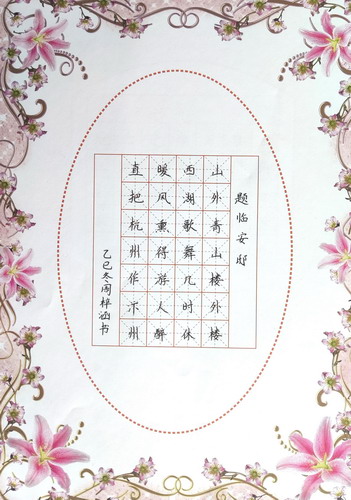 题临安邸
山外青山楼外楼
西湖歌舞几时休
暖风熏得游人醉
直把杭州作汴州
乙巳冬梓涵书